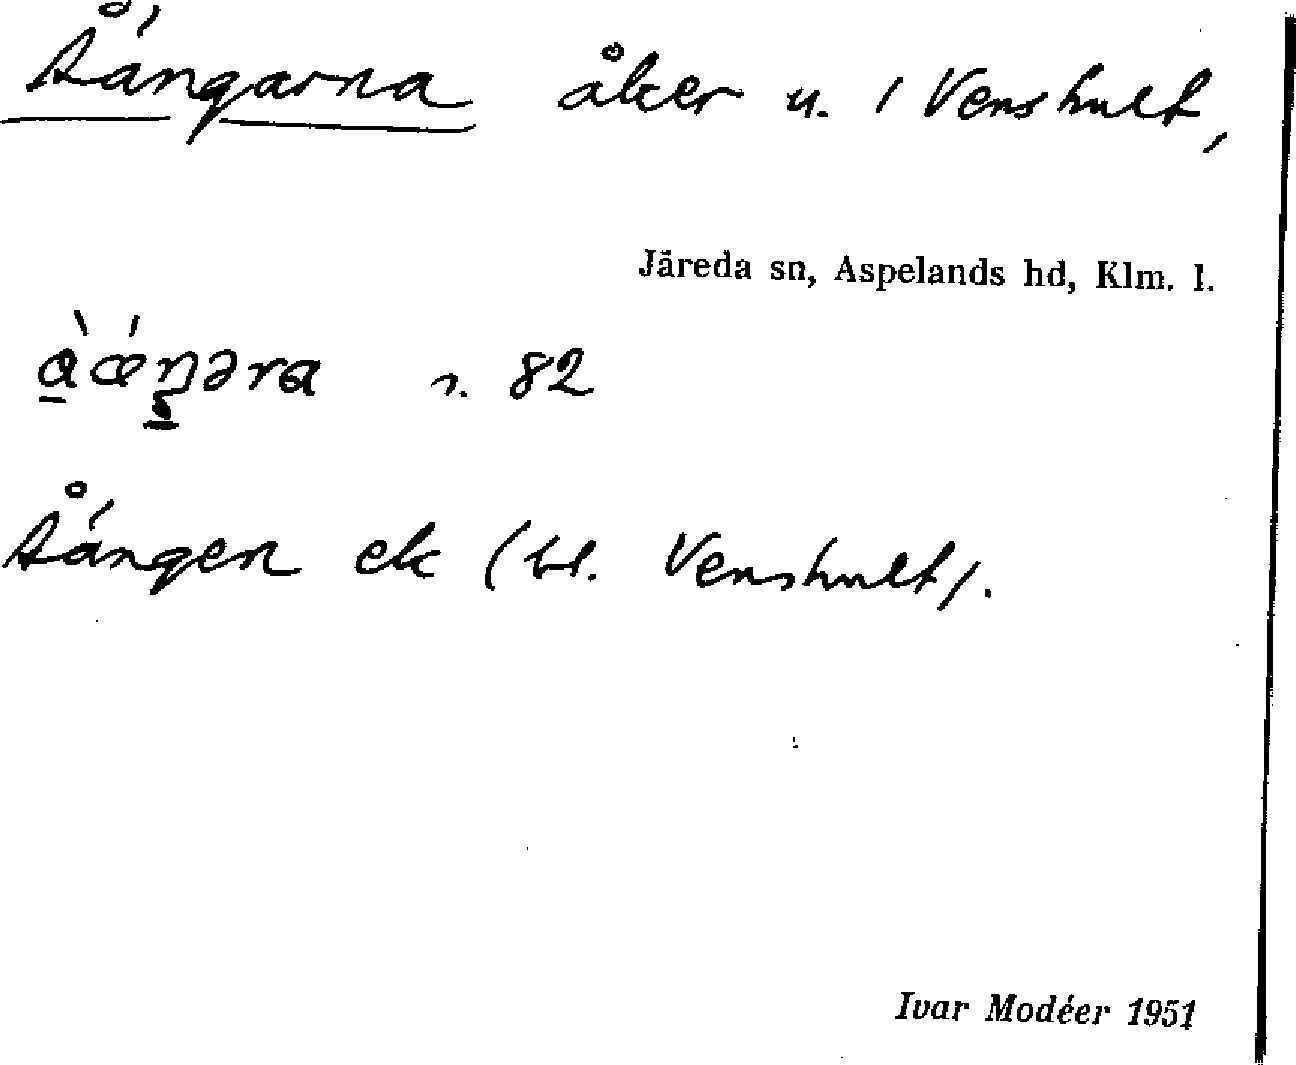 Åängarna åker u. i Venshult,
Järeda sn, Aspelands hd, Klm. l.
n. 82
Åängen ek (bl. Venshult).
Ivar Modéer 1951